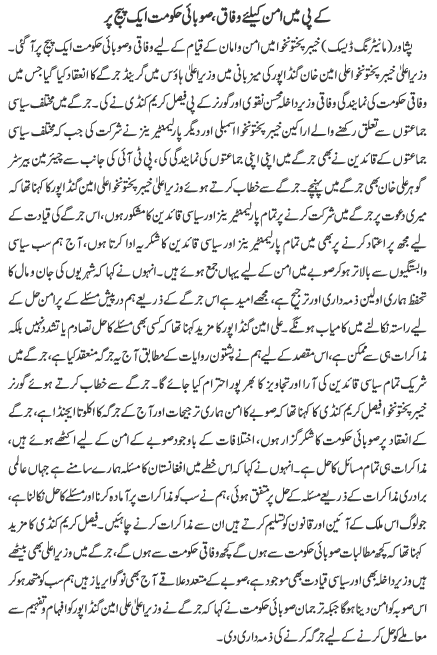 کے پی میں امن کیلئے وفاق، صوبائی حکومت ایک پیج پر
پشاور (مانیٹرنگ ڈیسک) خیبر پختونخوا میں امن و امان کے قیام کے لیے وفاقی و صوبائی حکومت ایک پیج پر آ گئی۔
وزیراعلیٰ خیبر پختونخوا علی امین خان گنڈاپور کی میزبانی میں وزیراعلیٰ ہاؤس میں گرینڈ جرگے کا انعقاد کیا گیا جس میں
وفاقی حکومت کی نمایندگی وفاقی وزیر داخلہ محسن نقوی اور گورنر کے پی فیصل کریم کنڈی نے کی۔ جرگے میں مختلف سیاسی
جماعتوں سے تعلق رکھنے والے اراکین خیبر پختونخوا اسمبلی اور دیگر پارلیمنٹیرینز نے شرکت کی جب کہ مختلف سیاسی
جماعتوں کے قائدین نے بھی جرگے میں اپنی اپنی جماعتوں کی نمائندگی کی، پی ٹی آئی کی جانب سے چیئرمین بیرسٹر
گوہر علی خان بھی جرگے میں پہنچے۔ جرگے سے خطاب کرتے ہوئے وزیراعلیٰ خیبر پختونخوا علی امین گنڈاپور کا کہنا تھا کہ
میری دعوت پر جرگے میں شرکت کرنے پر تمام پارلیمنٹیرینز اور سیاسی قائدین کا مشکور ہوں، اس جرگے کی قیادت کے
لیے مجھ پر اعتماد کرنے پر بھی میں تمام پارلیمنٹیرینز اور سیاسی قائدین کا شکریہ ادا کرتا ہوں، آج ہم سب سیاسی
وابستگیوں سے بالاتر ہو کر صوبے میں امن کے لیے یہاں جمع ہوئے ہیں۔ انہوں نے کہا کہ شہریوں کی جان و مال کا
تحفظ ہماری اولین ذمہ داری اور ترجیح ہے، مجھے امید ہے اس جرگے کے ذریعے ہم درپیش مسئلے کے پرامن حل کے
لیے راستہ نکالنے میں کامیاب ہو نگے۔ علی امین گنڈاپور کا مزید کہنا تھا کہ کسی بھی مسئلے کا حل تصادم یا تشدد نہیں بلکہ
مذاکرات ہی سے ممکن ہے، اس مقصد کے لیے ہم نے پشتون روایات کے مطابق آج یہ جرگہ منعقد کیا ہے، جرگے میں
شریک تمام سیاسی قائدین کی آرا اور تجاویز کا بھرپور احترام کیا جائے گا۔ جرگے سے خطاب کرتے ہوئے گورنر
خیبر پختونخوا فیصل کریم کنڈی کا کہنا تھا کہ صوبے کا امن ہماری ترجیحات اور آج کے جرگہ کا اکلوتا ایجنڈا ہے، جرگے
کے انعقاد پر صوبائی حکومت کا شکر گزار ہوں، اختلافات کے باوجود صوبے کے امن کے لیے اکٹھے ہوئے ہیں،
مذاکرات ہی تمام مسائل کا حل ہے۔ انہوں نے کہا کہ اس خطے میں افغانستان کا مسئلہ ہمارے سامنے ہے جہاں عالمی
برادری مذاکرات کے ذریعے مسئلہ کے حل پر متفق ہوئی، ہم نے سب کو مذاکرات پر آمادہ کرنا اور مسئلے کا حل نکالنا ہے،
جو لوگ اس ملک کے آئین اور قانون کو تسلیم کرتے ہیں ان سے مذاکرات کرنے چاہئیں۔ فیصل کریم کنڈی کا مزید
کہنا تھا کہ کچھ مطالبات صوبائی حکومت سے ہوں گے کچھ وفاقی حکومت سے ہوں گے، جرگے میں وزیراعلیٰ بھی بیٹھے
ہیں وزیر داخلہ بھی اور سیاسی قیادت بھی موجود ہے، صوبے کے متعدد علاقے آج بھی نوگو ایریاز ہیں ہم سب کو متحد ہو کر
اس صوبہ کو امن دینا ہوگا جبکہ ترجمان صوبائی حکومت نے کہا کہ جرگے نے وزیراعلیٰ علی امین گنڈاپور کو افہام و تفہیم سے
معاملے کو حل کرنے کے لیے جرگہ کرنے کی ذمہ داری دی۔